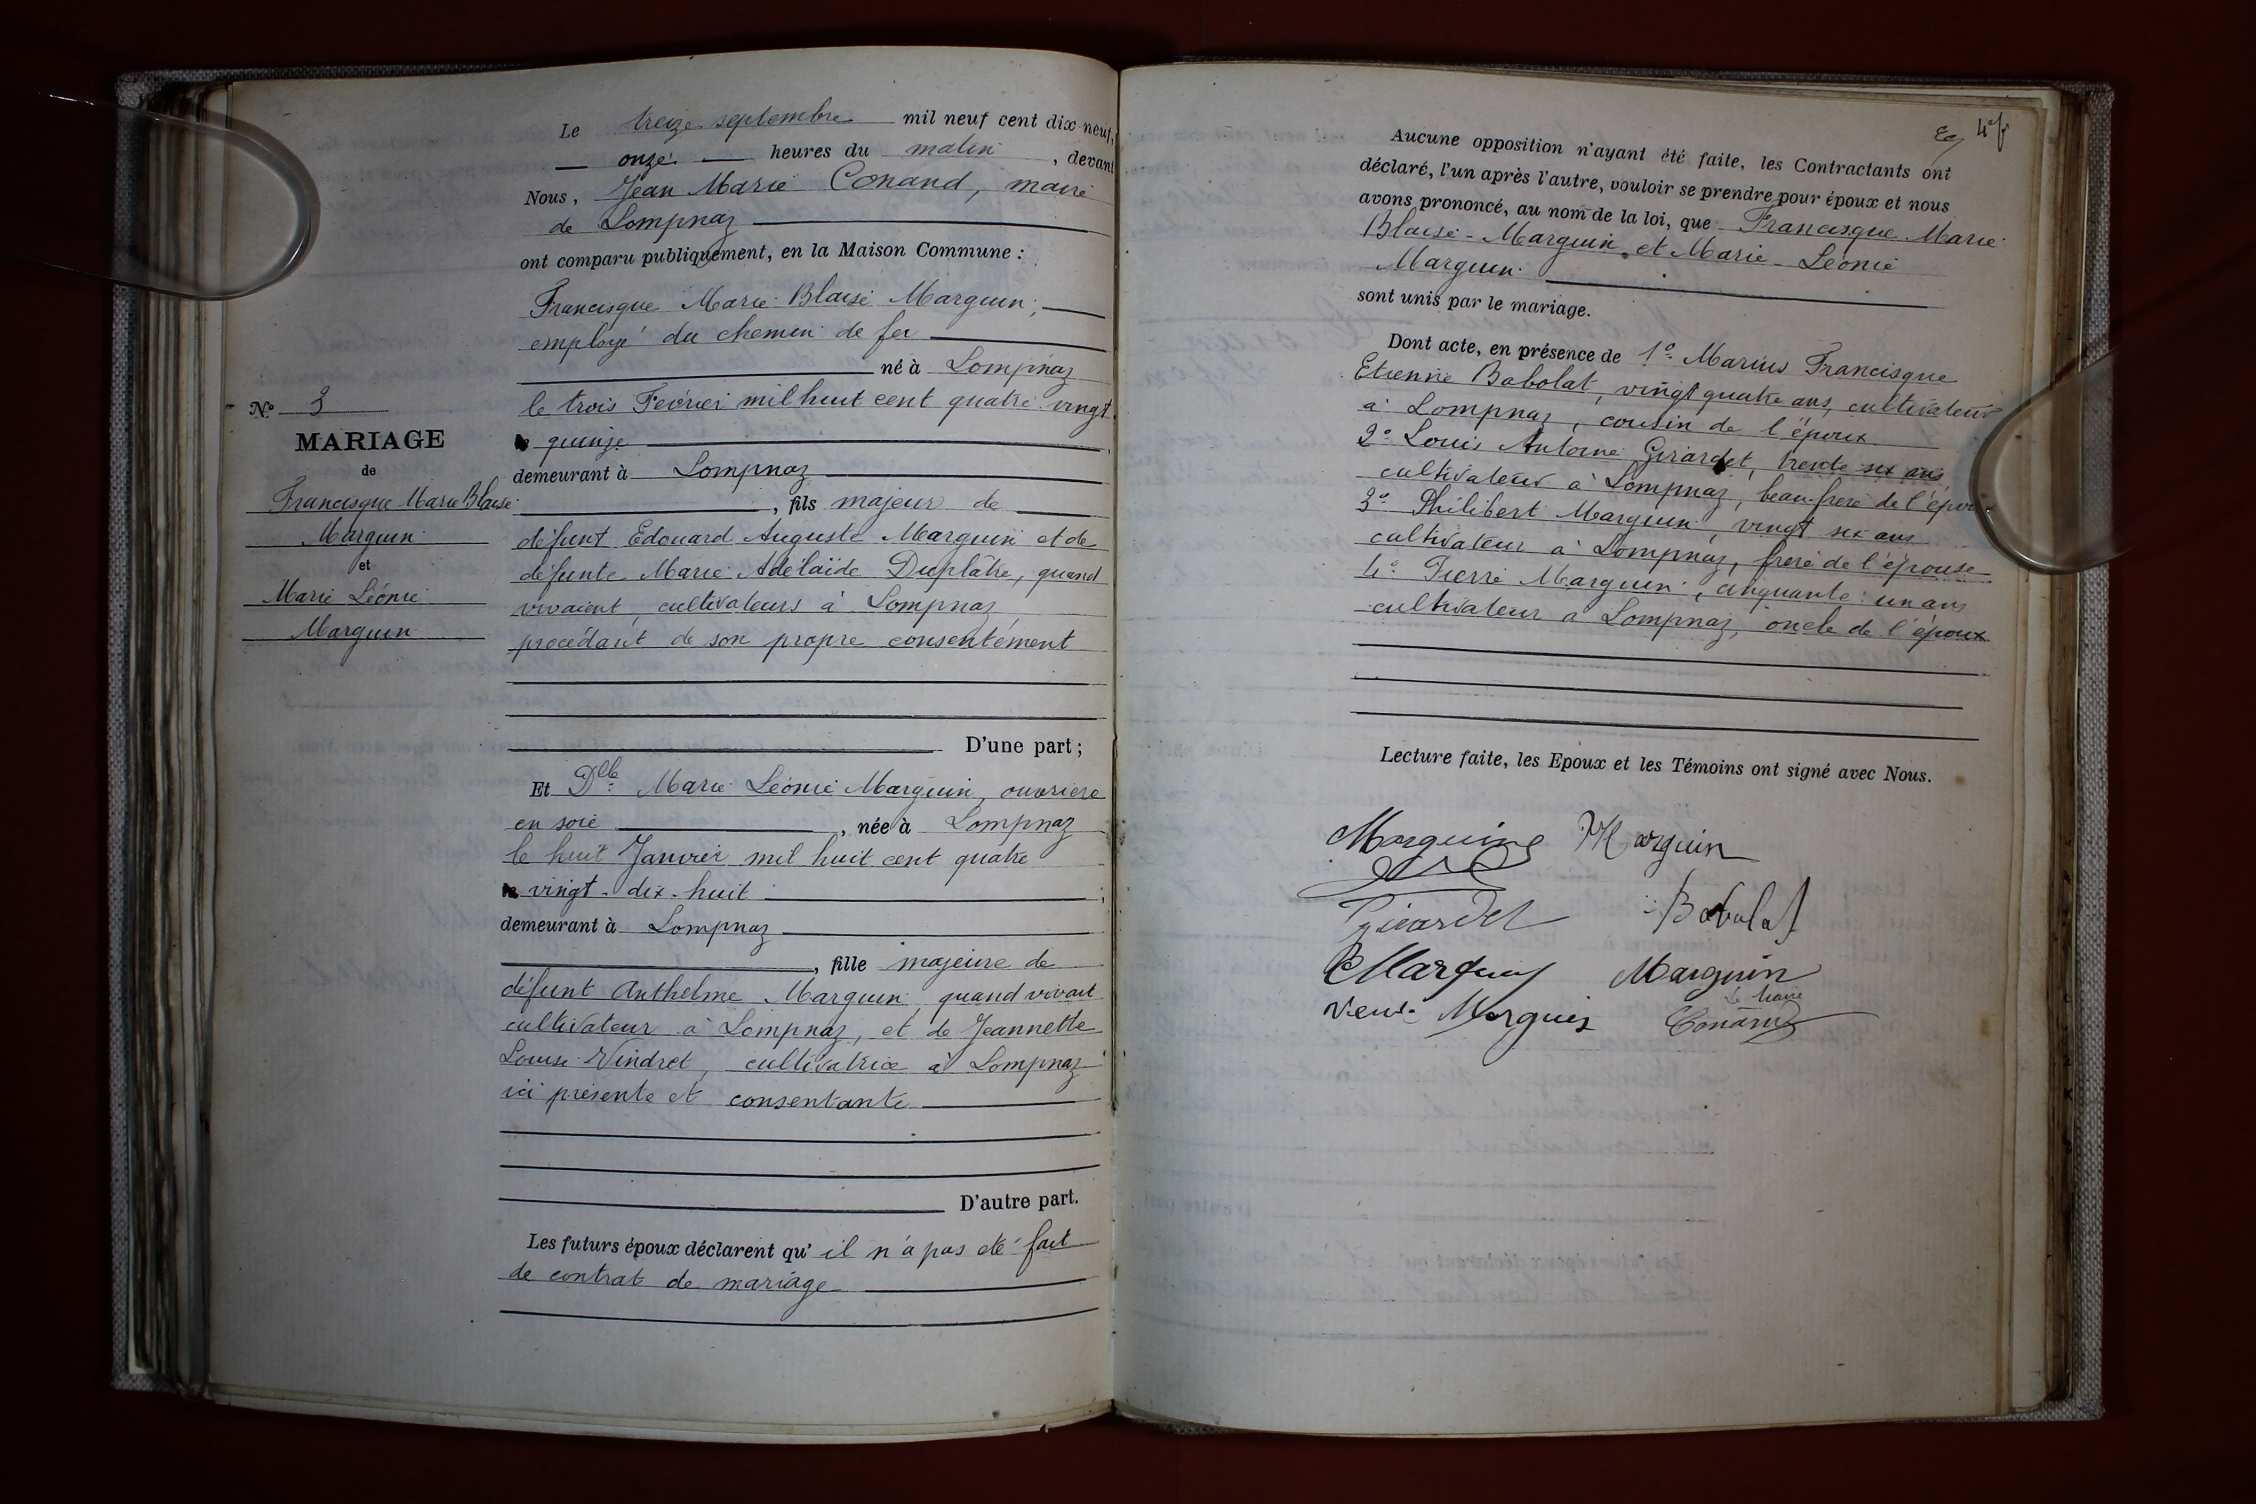 Le treize septembre mil neuf cent dix-neuf,
onze heures du matin, devant
Nous, Jean Marie Conand, maire
de Lompnaz
ont comparu publiquement, en la Maison Commune :
Francisque Marie Blaise Marguin,
employé du chemin de fer
né à Lompnaz
le trois Février mil huit cent quatre vingt
quinze
demeurant à Lompnaz
, fils majeur de
défunt Edouard Auguste Marguin et de
défunte Marie Adélaïde Duplâtre, quand
vivaient, cultivateurs à Lompnaz
procédant de son propre consentement
D'une part ;
Et Dlle Marie Léonie Marguin, ouvrière
en soie, née à Lompnaz
le huit Janvier mil huit cent quatre
vingt-dix-huit
demeurant à Lompnaz
, fille majeure de
défunt Anthelme Marguin quand vivait
cultivateur à Lompnaz, et de Jeannette
Louise Vindret, cultivatrice à Lompnaz
ici présente et consentante
D'autre part.
Les futurs époux déclarent qu'il n'a pas été fait
de contrat de mariage
N° 3
MARIAGE
de
Francisque Marie Blaise
Marguin
et
Marie Léonie
Marguin
4e f
Aucune opposition n'ayant été faite, les Contractants ont
déclaré, l'un après l'autre, vouloir se prendre pour époux et nous
avons prononcé, au nom de la loi, que Francisque Marie
Blaise Marguin et Marie-Léonie
Marguin
sont unis par le mariage.
Dont acte, en présence de 1° Marius Francisque
Etienne Babolat, vingt quatre ans, cultivateur
à Lompnaz, cousin de l'époux
2° Louis Antoine Girardet, trente six ans,
cultivateur à Lompnaz, beau-frère de l'épou
3° Philibert Marguin, vingt six ans
cultivateur à Lompnaz, frère de l'épouse
4° Pierre Marguin, cinquante un ans
cultivateur à Lompnaz, oncle de l'époux
Lecture faite, les Epoux et les Témoins ont signé avec Nous.
Marguin Marguin
Girardet Babolat
Marguin Marguin
Veuve Marguin
Le Maire
Conand